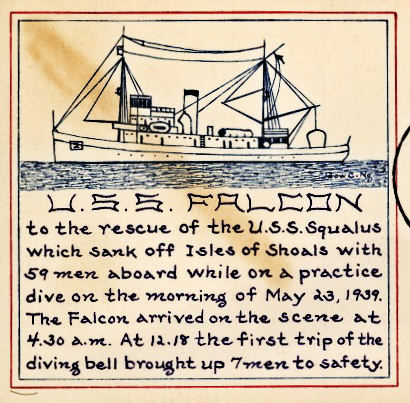 U.S.S. FALCON
to the rescue of the U.S.S. Squalus
which sank off Isles of Shoals with
59 men aboard while on a practice
dive on the morning of May 23, 1939.
The Falcon arrived on the scene at
4.30 a.m. At 12.18 the first trip of the
diving bell brought up 7 men to safety.